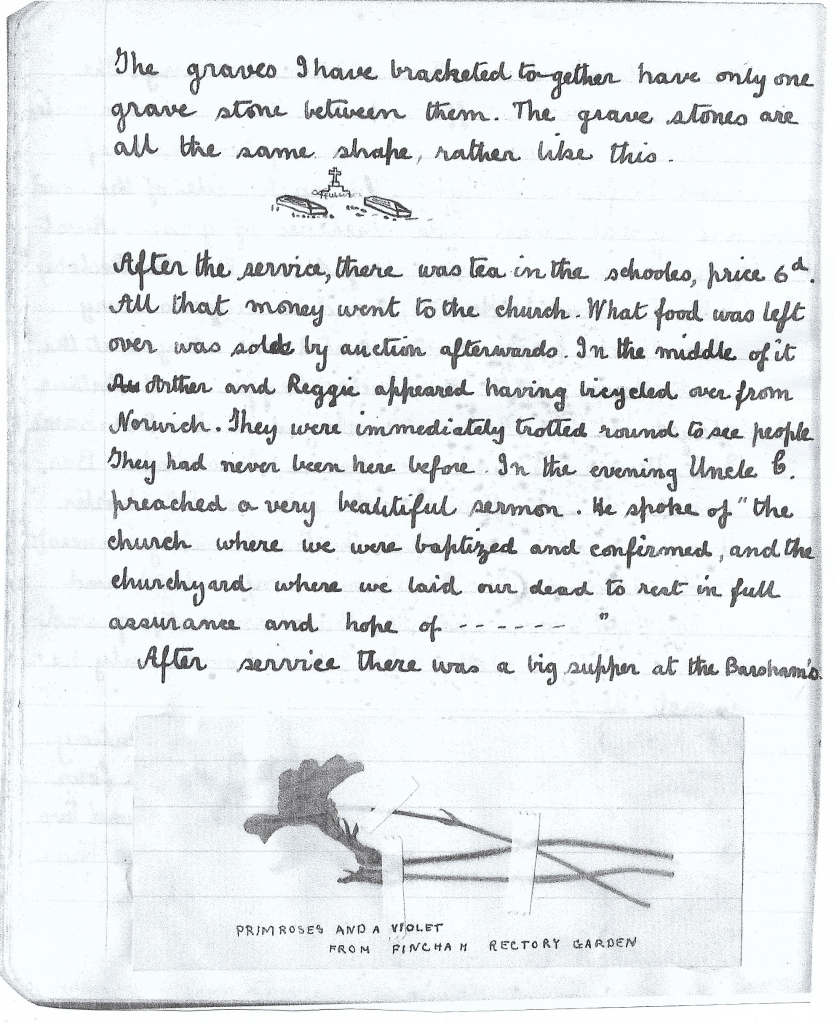 The graves I have bracketed to-gether have only one
grave stone between them. The grave stones are
all the same shape, rather like this.
After the service, there was tea in the schooles, price 6d.
All that money went to the church. What food was left
over was sold by auction afterwards. In the middle of it
Arther and Reggie appeared having bicycled over from
Norwich. They were immediately trotted round to see people
They had never been here before. In the evening Uncle C.
preached a very beautiful sermon. He spoke of "the
church where we were baptized and confirmed, and the
churchyard where we laid our dead to rest in full
assurance and hope of ------ "
After service there was a big supper at the Barsham's.
PRIMROSES AND A VIOLET
FROM FINCHAM RECTORY GARDEN